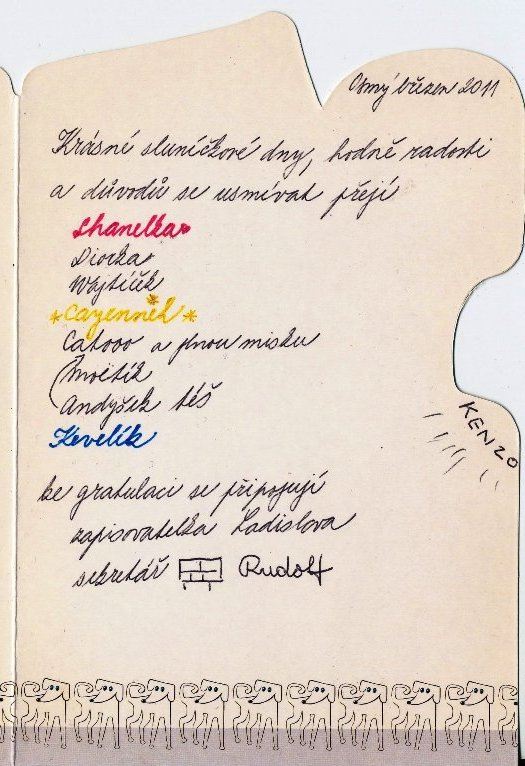 Osmý březen 2011
Krásné sluníčkové dny, hodně radosti
a důvodů se usmívat přejí
Chanelka
Diorka
Wajtíček
Cayennek
Catooo a plnou misku
Andyšek též
Kevelík
KENZO
ke gratulaci se připojují
zapisovatelka Ladislava
sekretář Rudolf